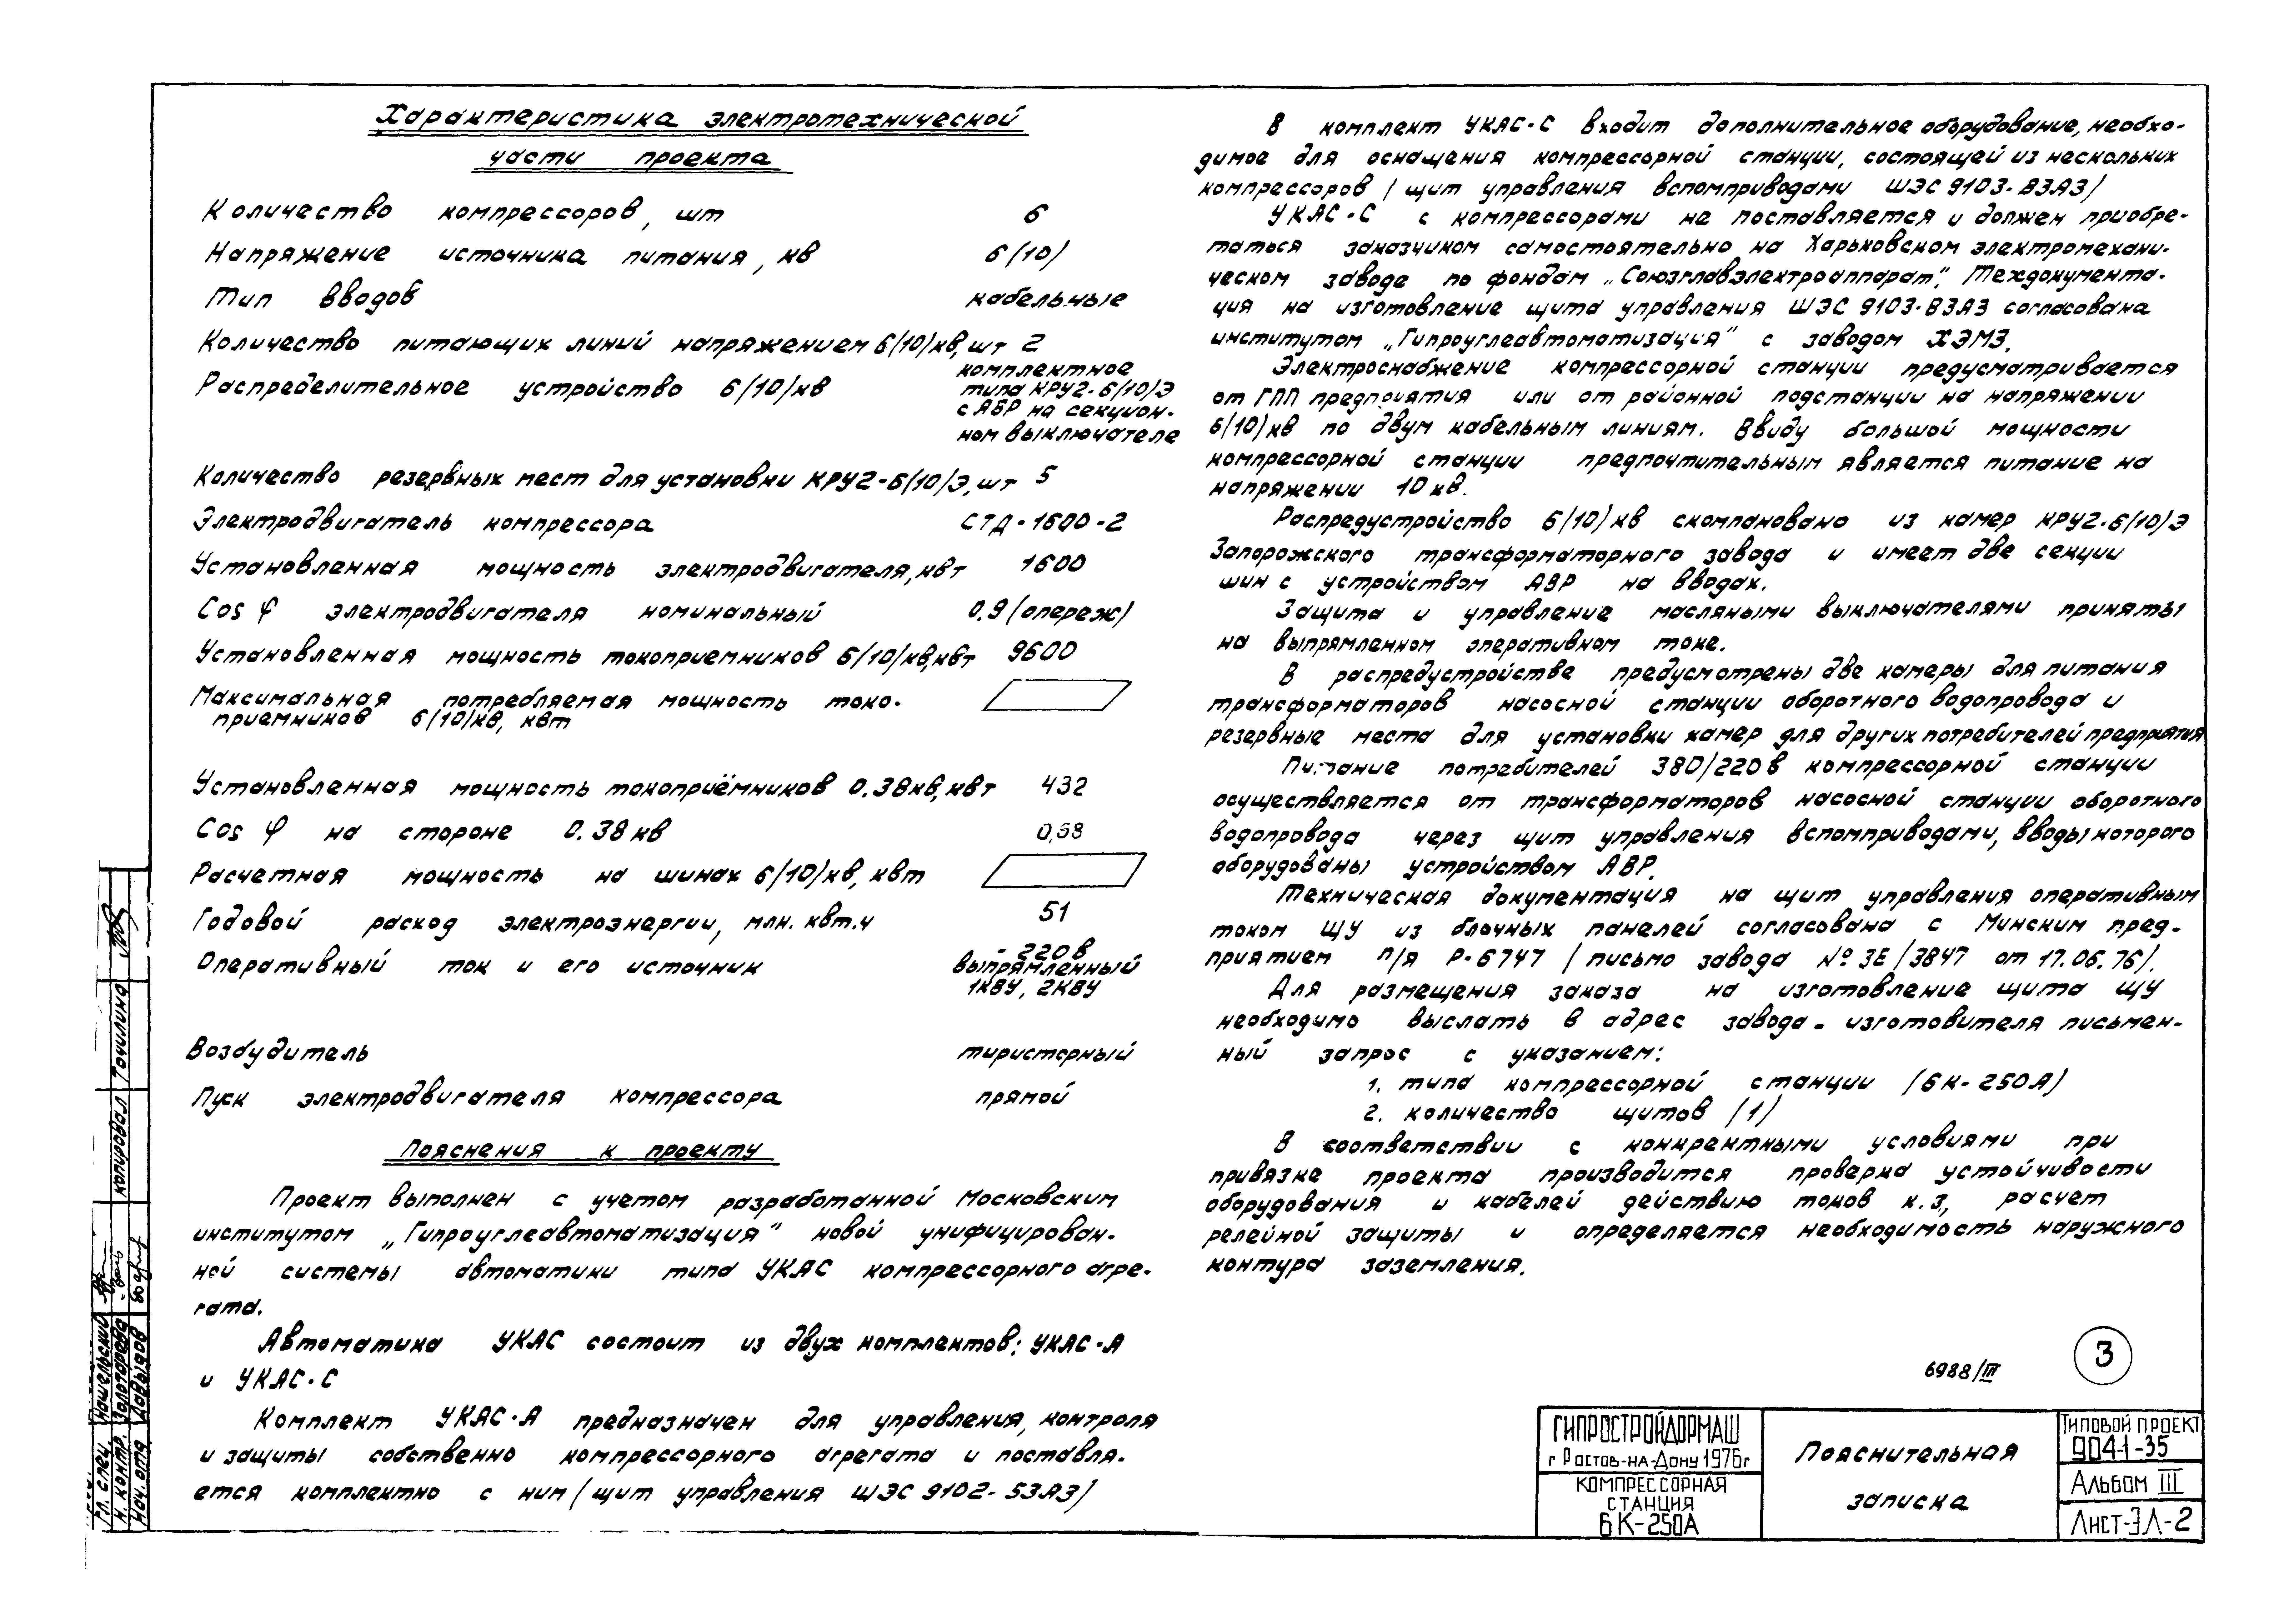 Характеристика электротехнической
части проекта
Количество компрессоров, шт 6
Напряжение источника питания, кв 6/10/
Тип вводов кабельные
Количество питающих линий напряжением 6/10/кв, шт 2
Распределительное устройство 6/10/кв комплектное
типа КРУ2-6/10/Э
с АВР на секцион-
ном выключателе
Количество резервных мест для установки КРУ2-6/10/Э, шт 5
Электродвигатель компрессора СТД-1600-2
Установленная мощность электродвигателя, квт 1600
Cos φ электродвигателя номинальный 0.9 (опереж)
Установленная мощность токоприемников 6/10/кв, квт 9600
Максимальная потребляемая мощность токо-
приемников 6/10/кв, квт
Установленная мощность токоприёмников 0.38кв, квт 432
Cos φ на стороне 0.38 кв 0,68
Расчетная мощность на шинах 6/10/кв, квт
Годовой расход электроэнергии, млн. квт.ч 51
Оперативный ток и его источник - 220в
выпрямленный
1КВУ, 2КВУ
Возбудитель тиристорный
Пуск электродвигателя компрессора прямой
Пояснения к проекту
Проект выполнен с учетом разработанной Московским
институтом „Гипроуглеавтоматизация" новой унифицирован-
ной системы автоматики типа УКАС компрессорного агре-
гата.
Автоматика УКАС состоит из двух комплектов: УКАС-А
и УКАС-С
Комплект УКАС-А предназначен для управления, контроля
и защиты собственно компрессорного агрегата и поставля-
ется комплектно с ним /щит управления ШЭС 9102-53А3/
В комплект УКАС-С входит дополнительное оборудование, необхо-
димое для оснащения компрессорной станции, состоящей из нескольких
компрессоров /щит управления вспомприводами ШЭС 9103-83А3/
УКАС-С с компрессорами не поставляется и должен приобре-
таться заказчиком самостоятельно на Харьковском электромехани-
ческом заводе по фондам „Союзглавэлектроаппарат". Техдокумента-
ция на изготовление щита управления ШЭС 9103-83А3 согласована
институтом „Гипроуглеавтоматизация" с заводом ХЭМЗ.
Электроснабжение компрессорной станции предусматривается
от ГПП предприятия или от районной подстанции на напряжении
6/10/кв по двум кабельным линиям. Ввиду большой мощности
компрессорной станции предпочтительным является питание на
напряжении 10 кв.
Распредустройство 6/10/кв скомпановано из камер КРУ2-6/10/Э
Запорожского трансформаторного завода и имеет две секции
шин с устройством АВР на вводах.
Защита и управление масляными выключателями приняты
на выпрямленном оперативном токе.
В распредустройстве предусмотрены две камеры для питания
трансформаторов насосной станции оборотного водопровода и
резервные места для установки камер для других потребителей предприятия
Питание потребителей 380/220в компрессорной станции
осуществляется от трансформаторов насосной станции оборотного
водопровода через щит управления вспомприводами, вводы которого
оборудованы устройством АВР.
Техническая документация на щит управления оперативным
током ЩУ из блочных панелей согласована с Минским пред-
приятием п/я Р-6747 /письмо завода № 3Е/3847 от 17.06.76/.
Для размещения заказа на изготовление щита ЩУ
необходимо выслать в адрес завода-изготовителя письмен-
ный запрос с указанием:
1. типа компрессорной станции (6К-250А)
2. количество щитов /1/
В соответствии с конкретными условиями при
привязке проекта производится проверка устойчивости
оборудования и кабелей действию токов к.з, расчет
релейной защиты и определяется необходимость наружного
контура заземления.
6988/III
3
ГИПРОСТРОЙДОРМАШ
г Ростов-на-Дону 1976г
КОМПРЕССОРНАЯ
СТАНЦИЯ
6К-250А
Пояснительная
записка
Типовой проект
904-1-35
Альбом III
Лист-ЭЛ-2
копировал Точилина
Гл. спец. Нашельский
Н. контр. Золотарева
Нач. отд Давыдов